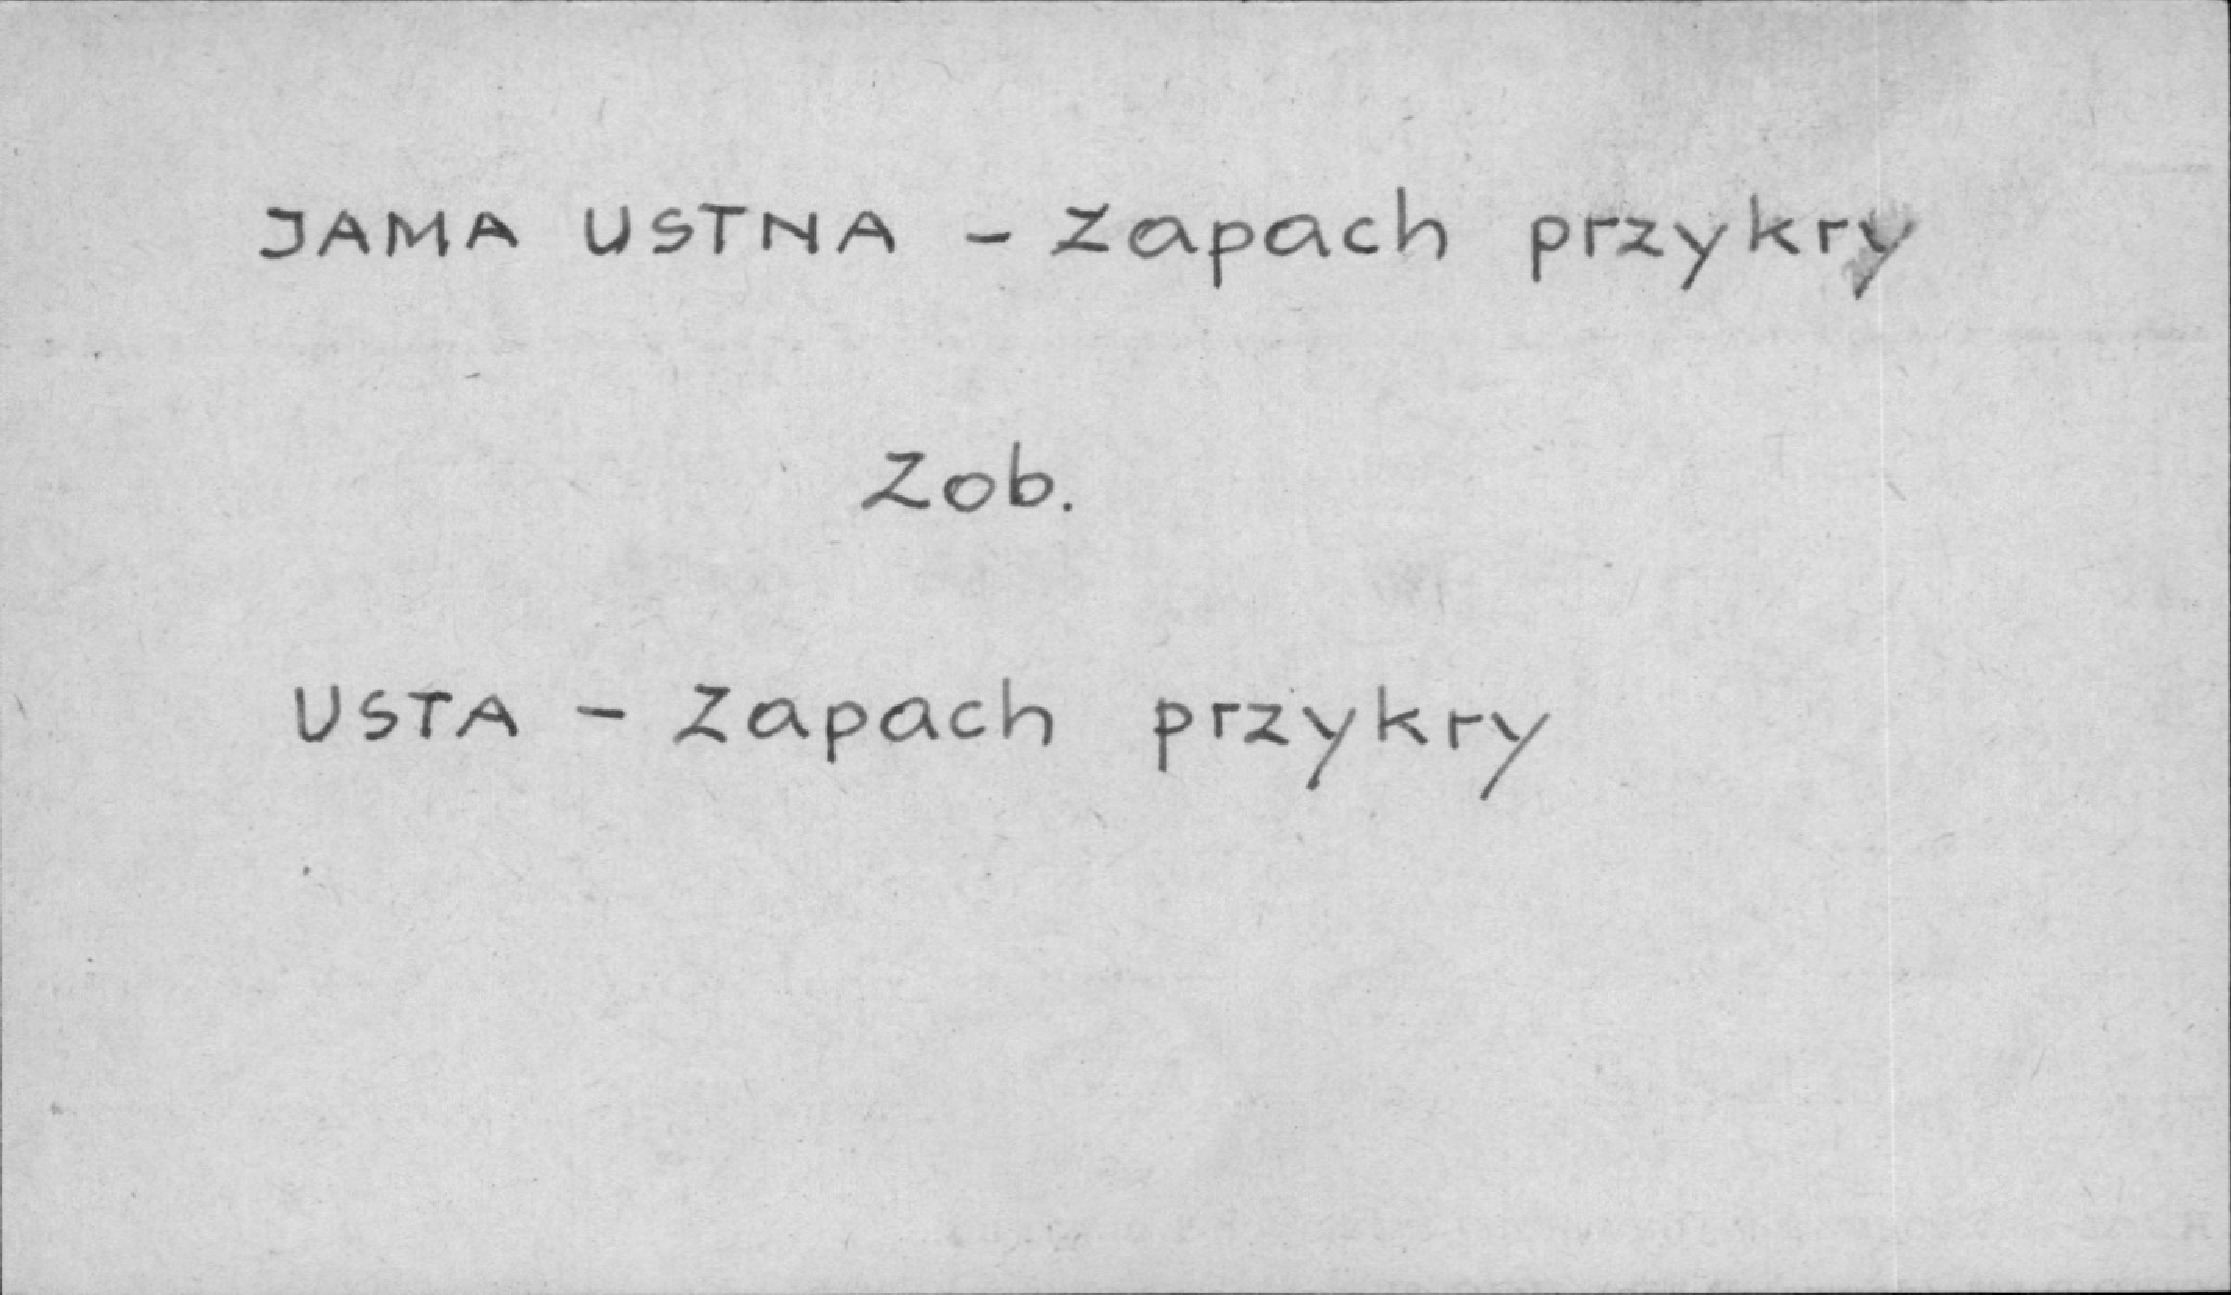 JAMA USTNA - Zapach przykry
Zob.
USTA - Zapach przykry